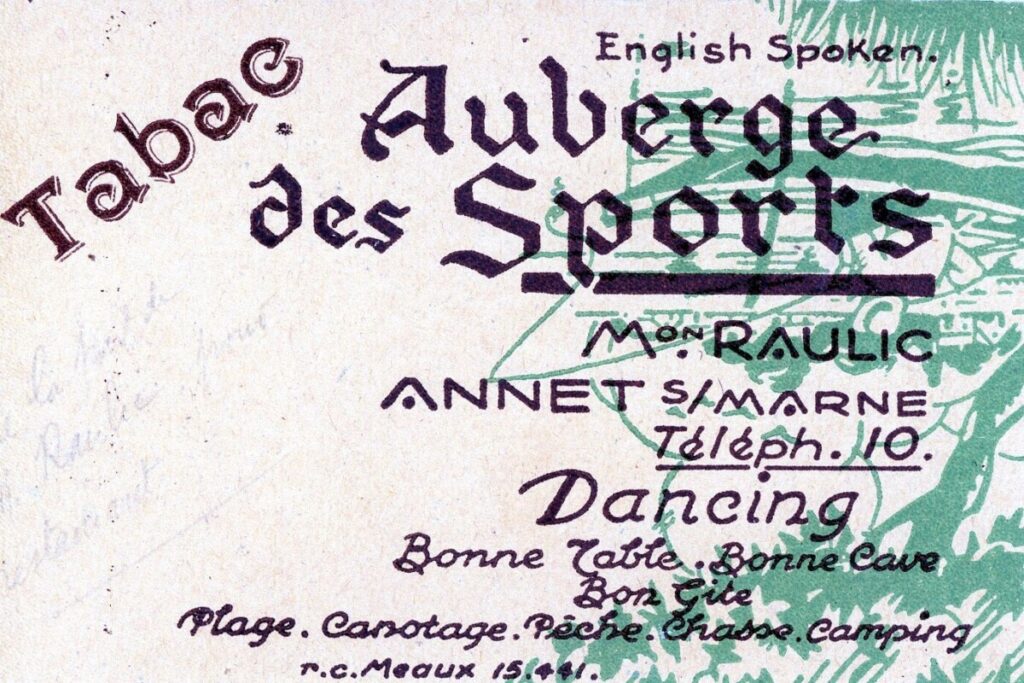 English Spoken.
Tabac
Auberge
des Sports
Mon. RAULIC
ANNET S/MARNE
Téléph. 10.
Dancing
Bonne Table. Bonne Cave
Bon Gite
Plage. Canotage. Pêche. Chasse. Camping
r.c. Meaux 15.441.
la
Raulic pour
restaurant